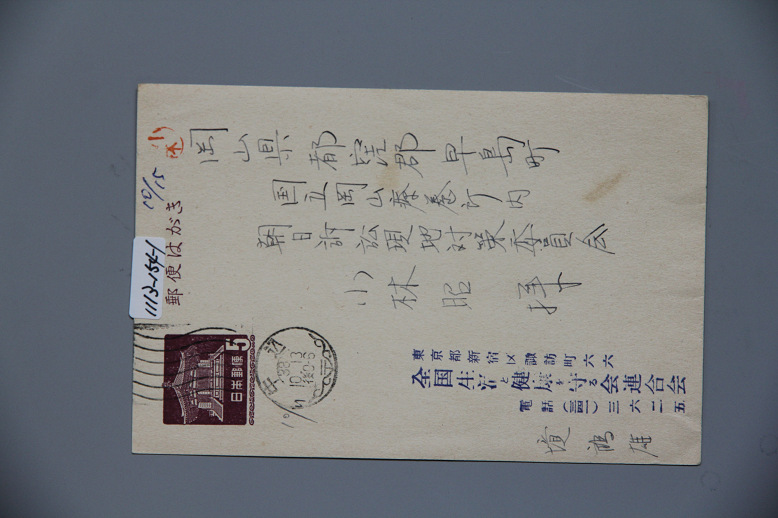 岡山県都窪郡早島町
国立岡山療養所内
朝日訴訟現地対策委員会
小林昭 拝
東京都新宿区諏訪町六六
全国生活と健康を守る会連合会
電話(三四一)三六二五
郵便はがき
10/15
1113-154-1
日本郵便
5
38
10.13
後0-6